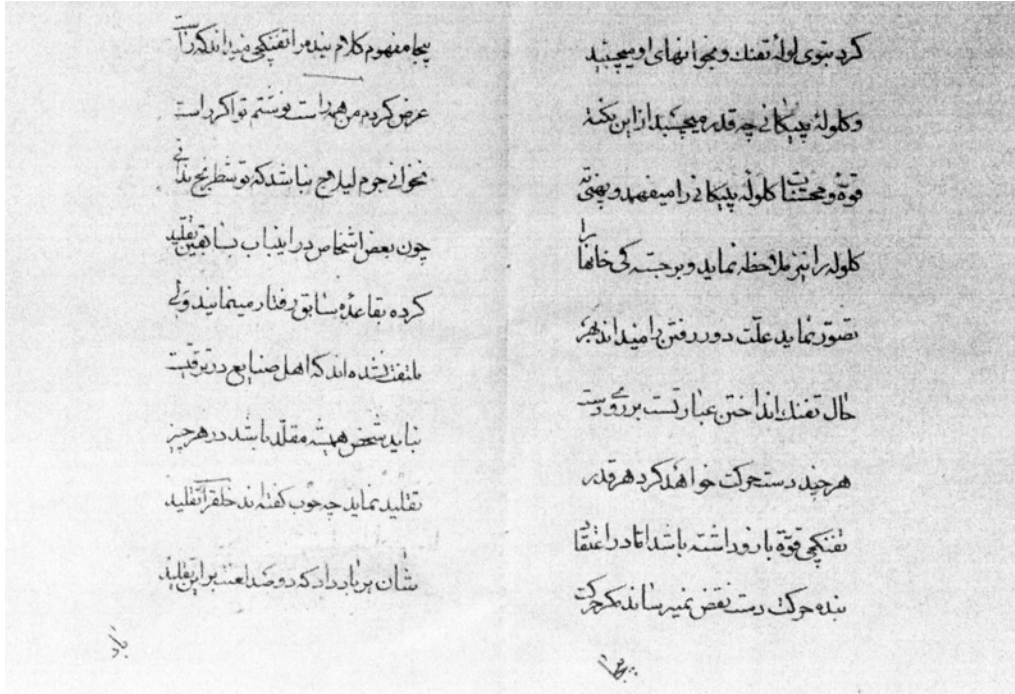 کرد بتوی لولهٔ تفنك و بخوانهای او میچسبد
و کلولهٔ پیکانی چه قدر میچسبد از این نکته
قوّه و محسّنات کلولهٔ پیکانی را میفهمد و پهنی ته
کلوله را نیز ملاحظه نماید و برجسته کی خانها را
تصوّر نماید علّت دور رفتن را میداند بهر
حال تفنك انداختن عبارتست بر روی دست
هر چند دست حرکت خواهد کرد هر قدر
تفنکچی قوّهٔ بازو داشته باشد امّا در اعتقاد
بنده حرکت دست نقص نمیرساند مکر حرکت
بیجا مفهوم کلام بنده را تفنکچی میداند که راست
عرض کردم من همه راست نوشتم تو اکر راست
نخوانی جرم لیلاج نباشد که تو شطرنج ندانی
چون بعض اشخاص در اینباب بسابقین تقلید
کرده بقاعدهٔ سابق رفتار مینمایند ولی
ملتفت نشده اند که اهل صنایع در ترقیست
نباید شخص همیشه مقلّد باشد در هر چیز
تقلید نماید چه خوب کفته اند خلق را تقلید
شان بر باد داد که دو صد لعنت بر این تقلید
باد